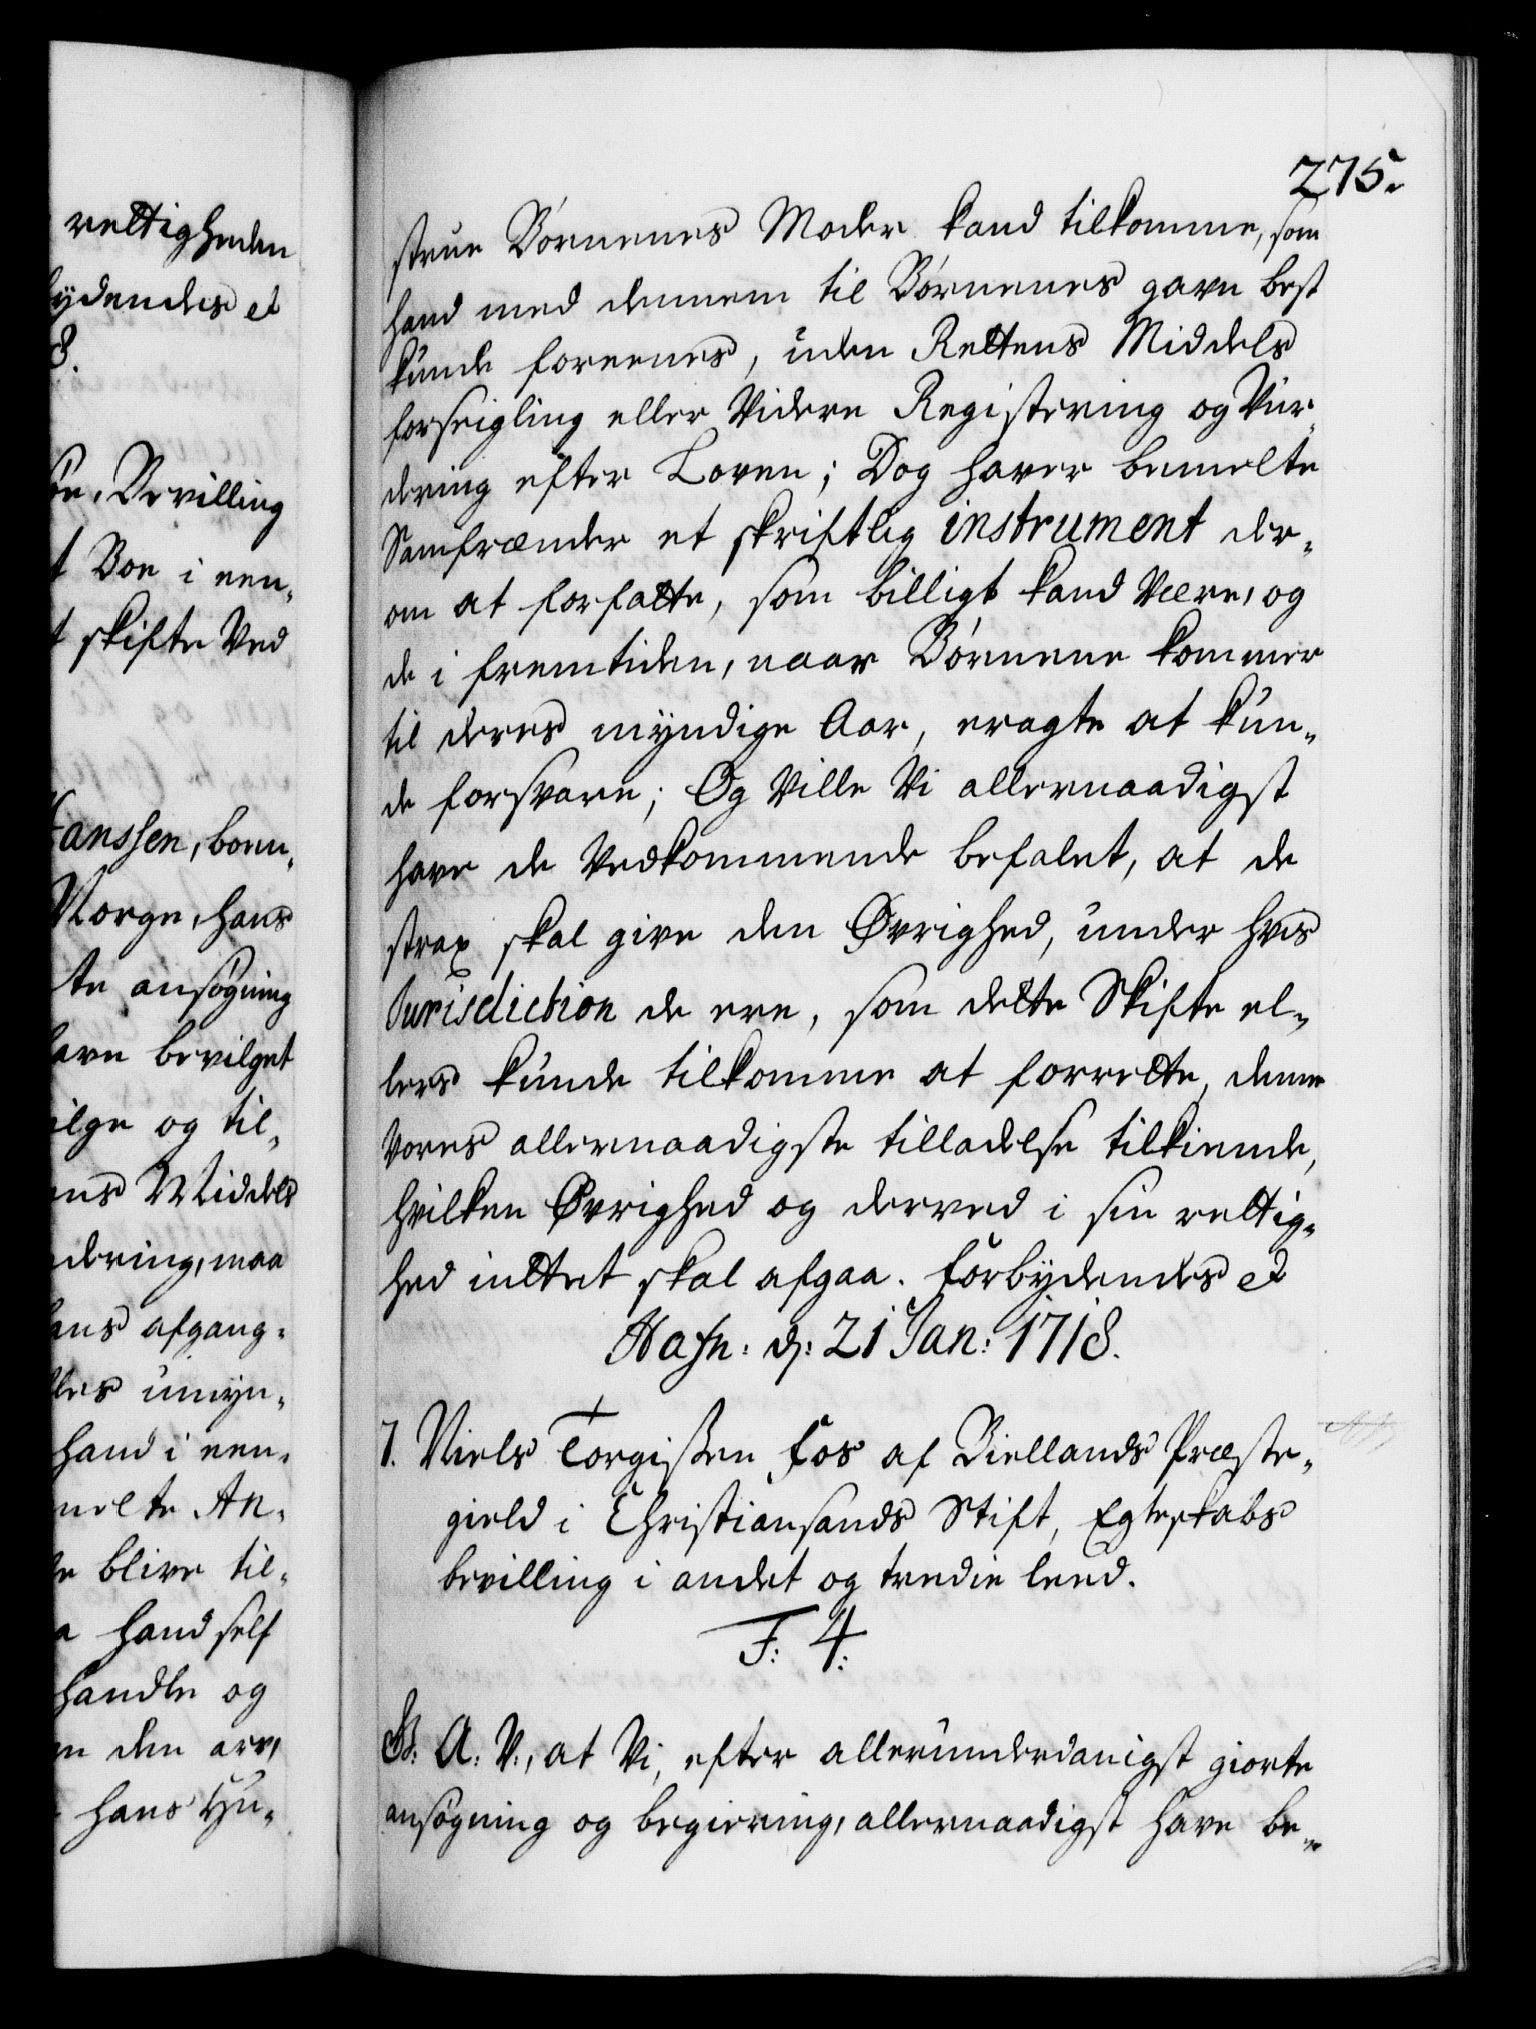 rettigheden
bydendes et
8.
Bevilling
t Boe i een¬
t skifte Ved
Hanssen, boen¬
Norge, hans
te ansøgning
have bevilget
ilge og til¬
ens Middels
dering, maa
hans afgang¬
umyn¬
hand i een¬
melte An¬
blive til¬
a hand self
handle og
den arv,
hans Hu¬
275.
strue Børnenes Moder kand tilkomme, som
hand med dennem til Børnenes gavn best
kunde foreenes, uden Rettens Middels
forseigling eller Videre Registering og Vur¬
dering efter Loven; Dog haver bemelte
Samfrænder et skriftlig instrument der¬
om at forfatte, som billigt kand Være, og
de i fremtiden, naar Børnene kommer
til deres myndige Aar, eragte at kun¬
de forsvare; Og Ville Vi allernaadigst
have de Vedkommende befalet, at de
strax skal give den Øvrighed, under hvis
Jurisdiction de ere, som dette Skifte el¬
lers kunde tilkomme at forrette, denne
Vores allernaadigste tilladelse tilkiende,
hvilken Øvrighed og derved i sin rettig¬
hed intet skal afgaa. Forbydendes et
Hafn: d: 21 Jan: 1718.
7. Niels Torgißen Fos af Biellands Præste¬
gield i Christiansands Stift, Egteskabs
bevilling i andet og tredie leed.
F: 4:
G: A: V:, at Vi, efter allerunderdanigst giorte
ansøgning og begiering, allernaadigst have be¬